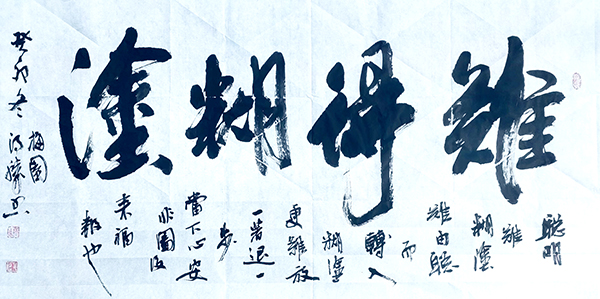 難得糊塗
聰明
難
糊塗
難由聰
而
轉入
糊塗
更難放
一著退一
步
當下心安
非圖後
來福
報也
梅園
癸卯冬